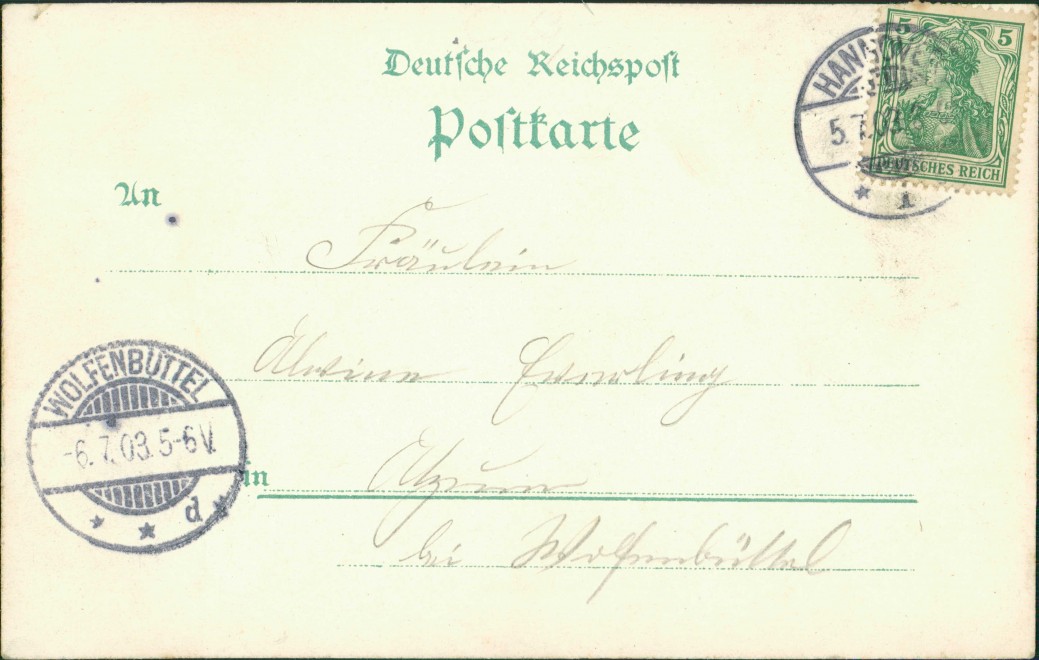 Deutsche Reichspost
Postkarte
5 5
DEUTSCHES REICH
HANNOVER
5.7.03.
1
An
Fräulein
Alwine Everling
WOLFENBÜTTEL
-6.7.03.5-6V.
d
in Atzum
bei Wolfenbüttel